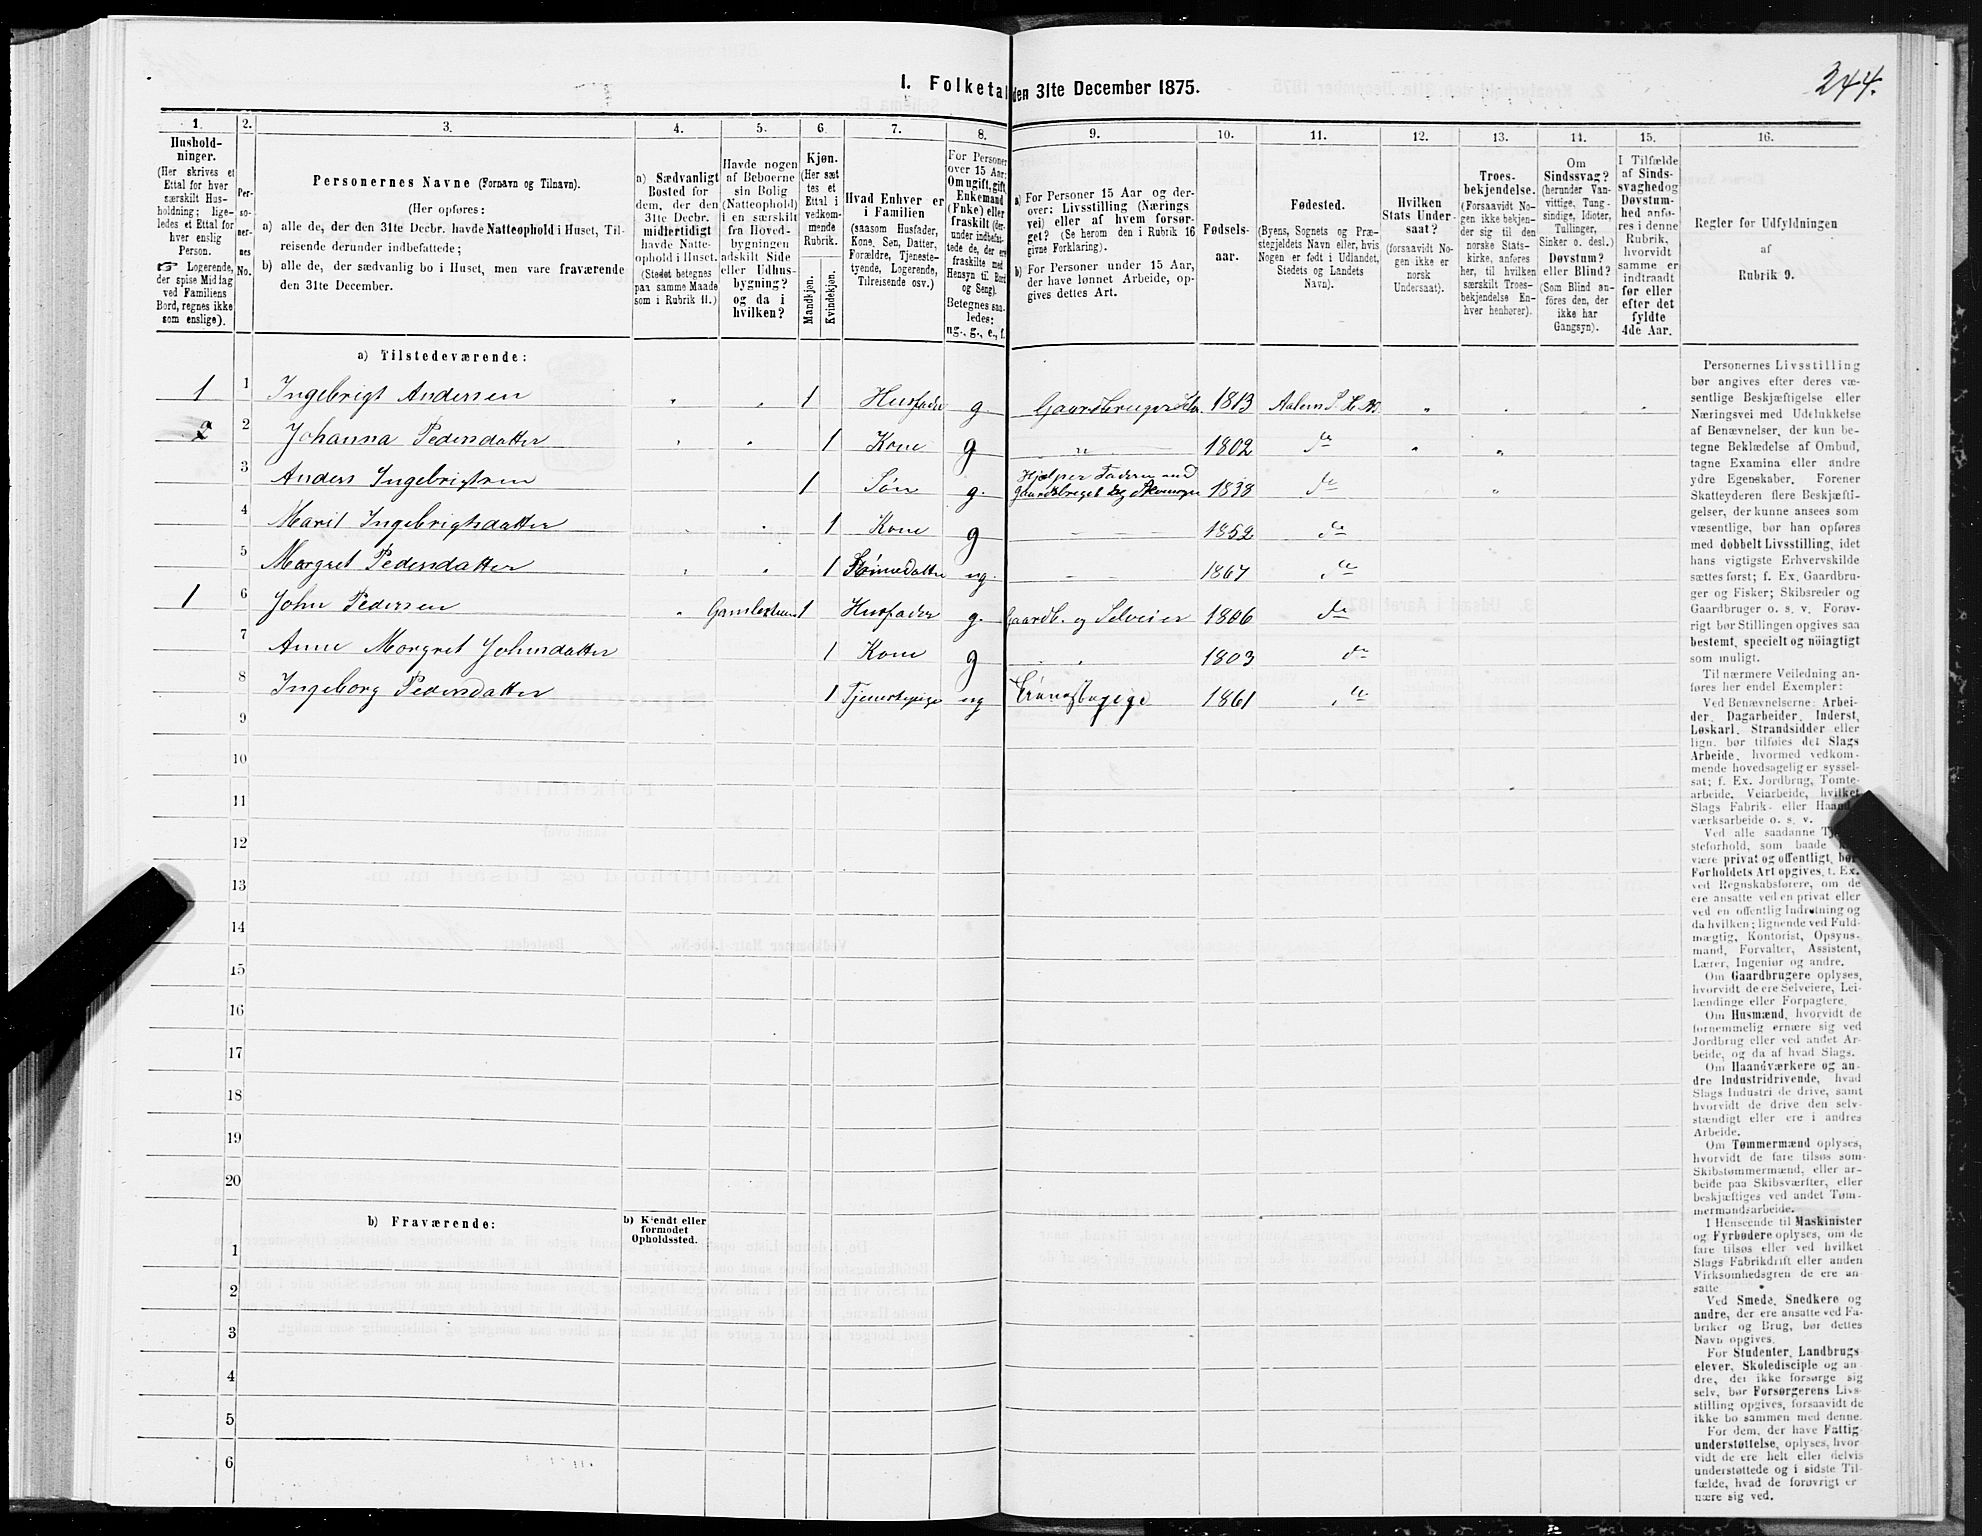 I. Folketal den 31te December 1875.
244.
1.
Hushold-
ninger.
(Her skrives et
Ettal for hver
særskilt Hus-
holdning; lige-
ledes et Ettal for
hver enslig
Person.
☞ Logerende,
der spise Middag
ved Familiens
Bord, regnes ikke
som enslige).
2.
Per-
so-
ner-
nes
No.
3.
Personernes Navne (Fornavn og Tilnavn).
(Her opføres:
a) alle de, der den 31te Decbr. havde Natteophold i Huset, Til-
reisende derunder indbefattede;
b) alle de, der sædvanlig bo i Huset, men vare fraværende
den 31te December.
4.
a) Sædvanligt
Bosted for
dem, der den
31te Decbr.
midlertidigt
havde Natte-
ophold i Huset.
(Stedet betegnes
paa samme Maade
som i Rubrik 11.)
5.
Havde nogen
af Beboerne
sin Bolig
(Natteophold)
i en særskilt
fra Hoved-
bygningen
adskilt Side
eller Udhus-
bygning?
og da i
hvilken?
6.
Kjøn.
(Her sæt
tes et
Ettal i
vedkom-
mende
Rubrik.
Mandkjøn.
Kvindekjøn.
7.
Hvad Enhver er
i Familien
(saasom Husfader,
Kone, Søn, Datter,
Forældre, Tjeneste-
tyende, Logerende,
Tilreisende osv.)
8.
For Personer
over 15 Aar:
Om ugift, gift,
Enkemand
(Enke) eller
fraskilt (der-
under indbefat-
tede de, der ere
fraskilte med
Hensyn til Bord
og Seng).
Betegnes saa-
ledes:
ug., g., e., f.
9.
a) For Personer 15 Aar og der-
over: Livsstilling (Nærings
vei) eller af hvem forsør-
get? (Se herom den i Rubrik 16
givne Forklaring).
b) For Personer under 15 Aar,
der have lønnet Arbeide, op-
gives dettes Art.
10.
Fødsels-
aar.
11.
Fødested.
(Byens, Sognets og Præ-
stegjeldets Navn eller, hvis
Nogen er født i Udlandet,
Stedets og Landets
Navn).
12.
Hvilken
Stats Under-
saat?
(forsaavidt No-
gen ikke er
norsk
Undersaat).
13.
Troes-
bekjendelse.
(Forsaavidt No-
gen ikke bekjen-
der sig til den
norske Stats-
kirke, anføres
her, til hvilken
særskilt Troes-
bekjendelse En-
hver henhører).
14.
Om
Sindssvag?
(herunder Van-
vittige, Tung-
sindige, Idioter,
Tullinger,
Sinker o. desl.)
Døvstum?
eller Blind?
(Som Blind an-
føres den, der
ikke har
Gangsyn).
15.
I Tilfælde
af Sinds-
svaghed og
Døvstum-
hed anfø-
res i denne
Rubrik,
hvorvidt
samme er
indtraadt
før eller
efter det
fyldte
4de Aar.
16.
Regler før Udfyldningen
af
Rubrik 9.
a) Tilstedeværende:
1 1 Ingebrigt Andersen 1 Husfader g. Gaardbruger Selv. 1813 Aalens S. H. P.
2 2 Johanna Pedersdatter 1 Kone g 1802 do
3 Anders Ingebrigtsen 1 Søn g. Hjelper Faderen med Gaardsbruget 1838 do
4 Marit Ingebrigtsdatter 1 Kone g 1852 do
5 Margret Pedersdatter 1 ug. 1867 do
1 6 John Pedersen 1 Husfader g. Gaardb. og Selveier 1806 do
7 Anne Margret Johnsdatter 1 Kone g 1803 do
8 Ingeborg Pedersdatter 1 Tjenestepige ug 1861 do
9
10
11
12
13
14
15
16
17
18
19
20
b) Fraværende:
b) Kjendt eller
formodet
Opholdssted.
1
2
3
4
5
6
Personernes Livsstilling
bør angives efter deres væ-
sentlige Beskjæftigelse eller
Næringsvei med Udelukkelse
af Benævnelser, der kun be-
tegne Beklædelse af Ombud,
tagne Examina eller andre
ydre Egenskaber. Forener
Skatteyderen flere Beskjæfti-
gelser, der kunne ansees som
væsentlige, bør han opføres
med dobbelt Livsstilling, idet
hans vigtigste Erhvervskilde
sættes først; f. Ex. Gaardbru-
ger og Fisker; Skibsreder og
Gaardbruger o. s. v. Forøv-
rigt bør Stillingen opgives saa
bestemt, specielt og nøiagtigt
som muligt.
Til nærmere Veiledning an-
føres her endel Exempler:
Ved Benævnelserne: Arbei-
der, Dagarbeider, Inderst,
Løskarl, Strandsidder eller
lign. bør tilføies det Slags
Arbeide, hvormed vedkom-
mende hovedsagelig er syssel-
sat; f. Ex. Jordbrug, Tomte-
arbeide, Veiarbeide, hvilket
Slags Fabrik- eller Haand-
værksarbeide o. s. v.
Ved alle saadanne Tje-
steforhold, som baade k
være privat og offentligt, bør
Forholdets Art opgives, f. Ex.
ved Regnskabsførere, om de
ere ansatte ved en privat eller
ved en offentlig Indretning og
da hvilken; lignende ved Fuld-
mægtig, Kontorist, Opsyns-
mand, Forvalter, Assistent,
Lærer, Ingeniør og andre.
Om Gaardbrugere oplyses,
hvorvidt de ere Selveiere, Lei-
lændinge eller Forpagtere.
Om Husmænd, hvorvidt de
fornemmelig ernære sig ved
Jordbrug eller ved andet Ar-
beide, og da af hvad Slags.
Om Haandværkere og an-
dre Industridrivende, hvad
Slags Industri de drive, samt
hvorvidt de drive den selv-
stændigt eller ere i andres
Arbeide.
Om Tømmermænd oplyses,
hvorvidt de fare tilsøs som
Skibstømmermænd, eller ar-
beide paa Skibsværfter, eller
beskjæftiges ved andet Tøm-
mermandsarbeide.
I Henseende til Maskinister
og Fyrbødere oplyses, om de
fare tilsøs eller ved hvilket
Slags Fabrikdrift eller anden
Virksomhedsgren de ere an-
satte.
Ved Smede, Snedkere og
andre, der ere ansatte ved Fa-
briker og Brug, bør dettes
Navn opgives.
For Studenter, Landbrugs
elever, Skoledisciple og an-
dre, der ikke forsørge sig
selv, bør Forsørgerens Livs-
stilling opgives, forsaavidt de
ikke bo sammen med denne.
For dem, der have Fattig-
understøttelse, oplyses, hvor
vidt de ere helt eller delvis
understøttede og i sidste Til-
fælde, hvad de forøvrigt er
nære sig ved.